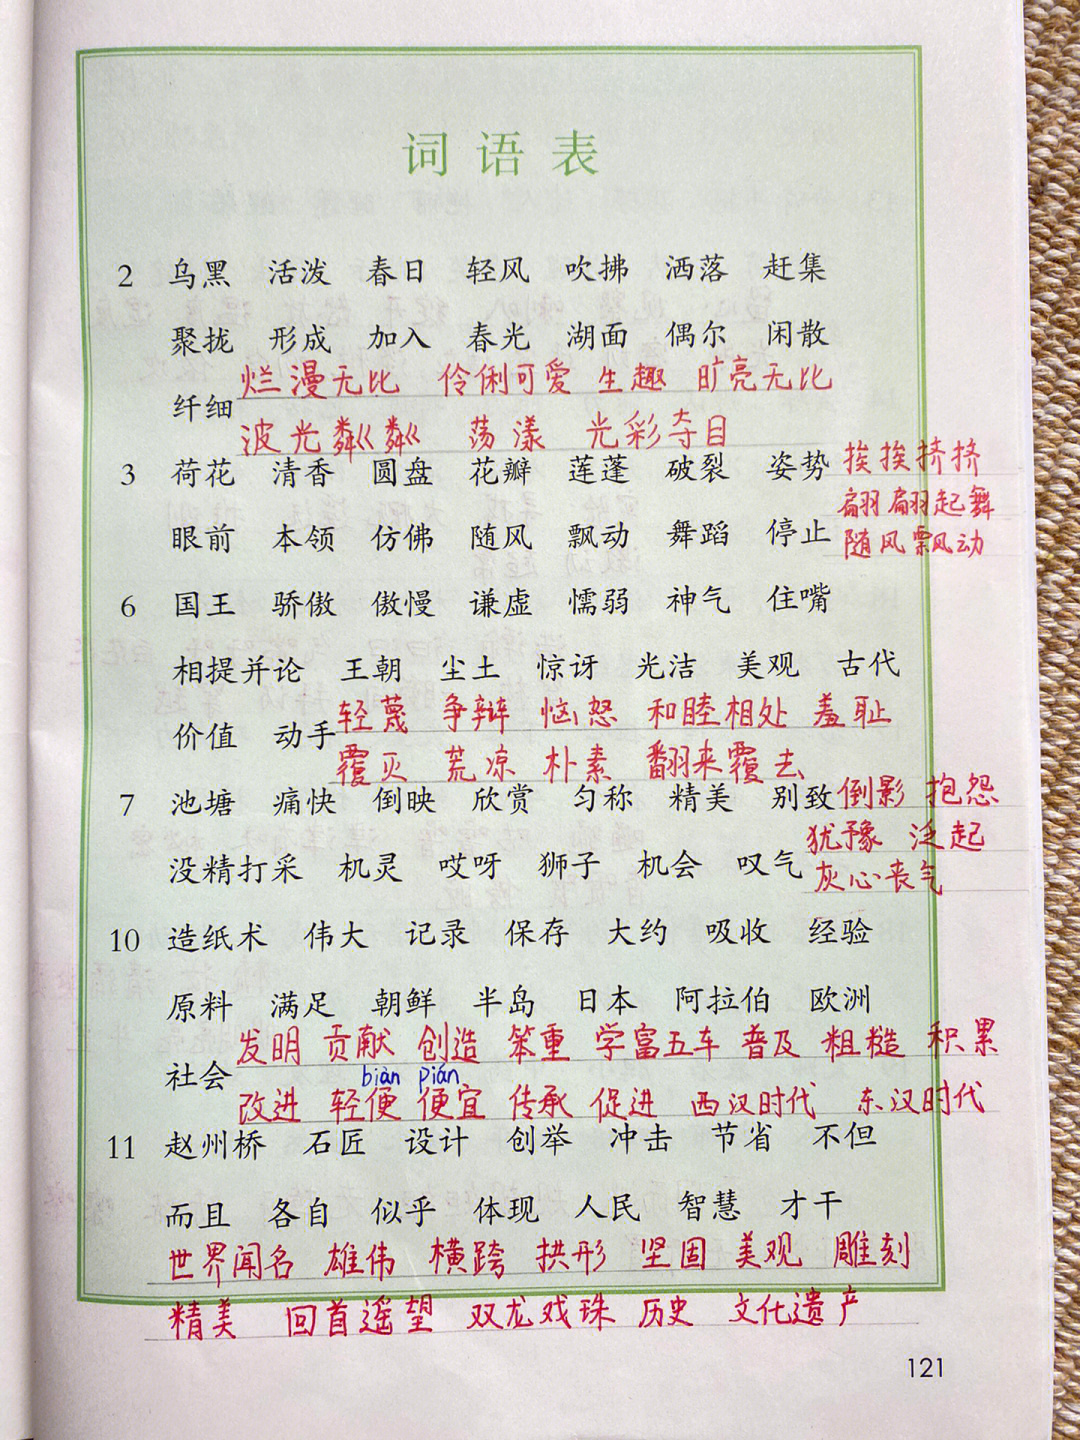 词语表
2 乌黑 活泼 春日 轻风 吹拂 洒落 赶集
聚拢 形成 加入 春光 湖面 偶尔 闲散
烂漫无比 伶俐可爱 生趣 旷亮无比
纤细
波光粼粼 荡漾 光彩夺目
3 荷花 清香 圆盘 花瓣 莲蓬 破裂 姿势 挨挨挤挤
翩翩起舞
眼前 本领 仿佛 随风 飘动 舞蹈 停止 随风飘动
6 国王 骄傲 傲慢 谦虚 懦弱 神气 住嘴
相提并论 王朝 尘土 惊讶 光洁 美观 古代
轻蔑 争辩 恼怒 和睦相处 羞耻
价值 动手
覆灭 荒凉 朴素 翻来覆去
7 池塘 痛快 倒映 欣赏 匀称 精美 别致 倒影 抱怨
犹豫 泛起
没精打采 机灵 哎呀 狮子 机会 叹气 灰心丧气
10 造纸术 伟大 记录 保存 大约 吸收 经验
原料 满足 朝鲜 半岛 日本 阿拉伯 欧洲
发明 贡献 创造 笨重 学富五车 普及 粗糙 积累
社会
biàn pián
改进 轻便 便宜 传承 促进 西汉时代 东汉时代
11 赵州桥 石匠 设计 创举 冲击 节省 不但
而且 各自 似乎 体现 人民 智慧 才干
世界闻名 雄伟 横跨 拱形 坚固 美观 雕刻
精美 回首遥望 双龙戏珠 历史 文化遗产
121